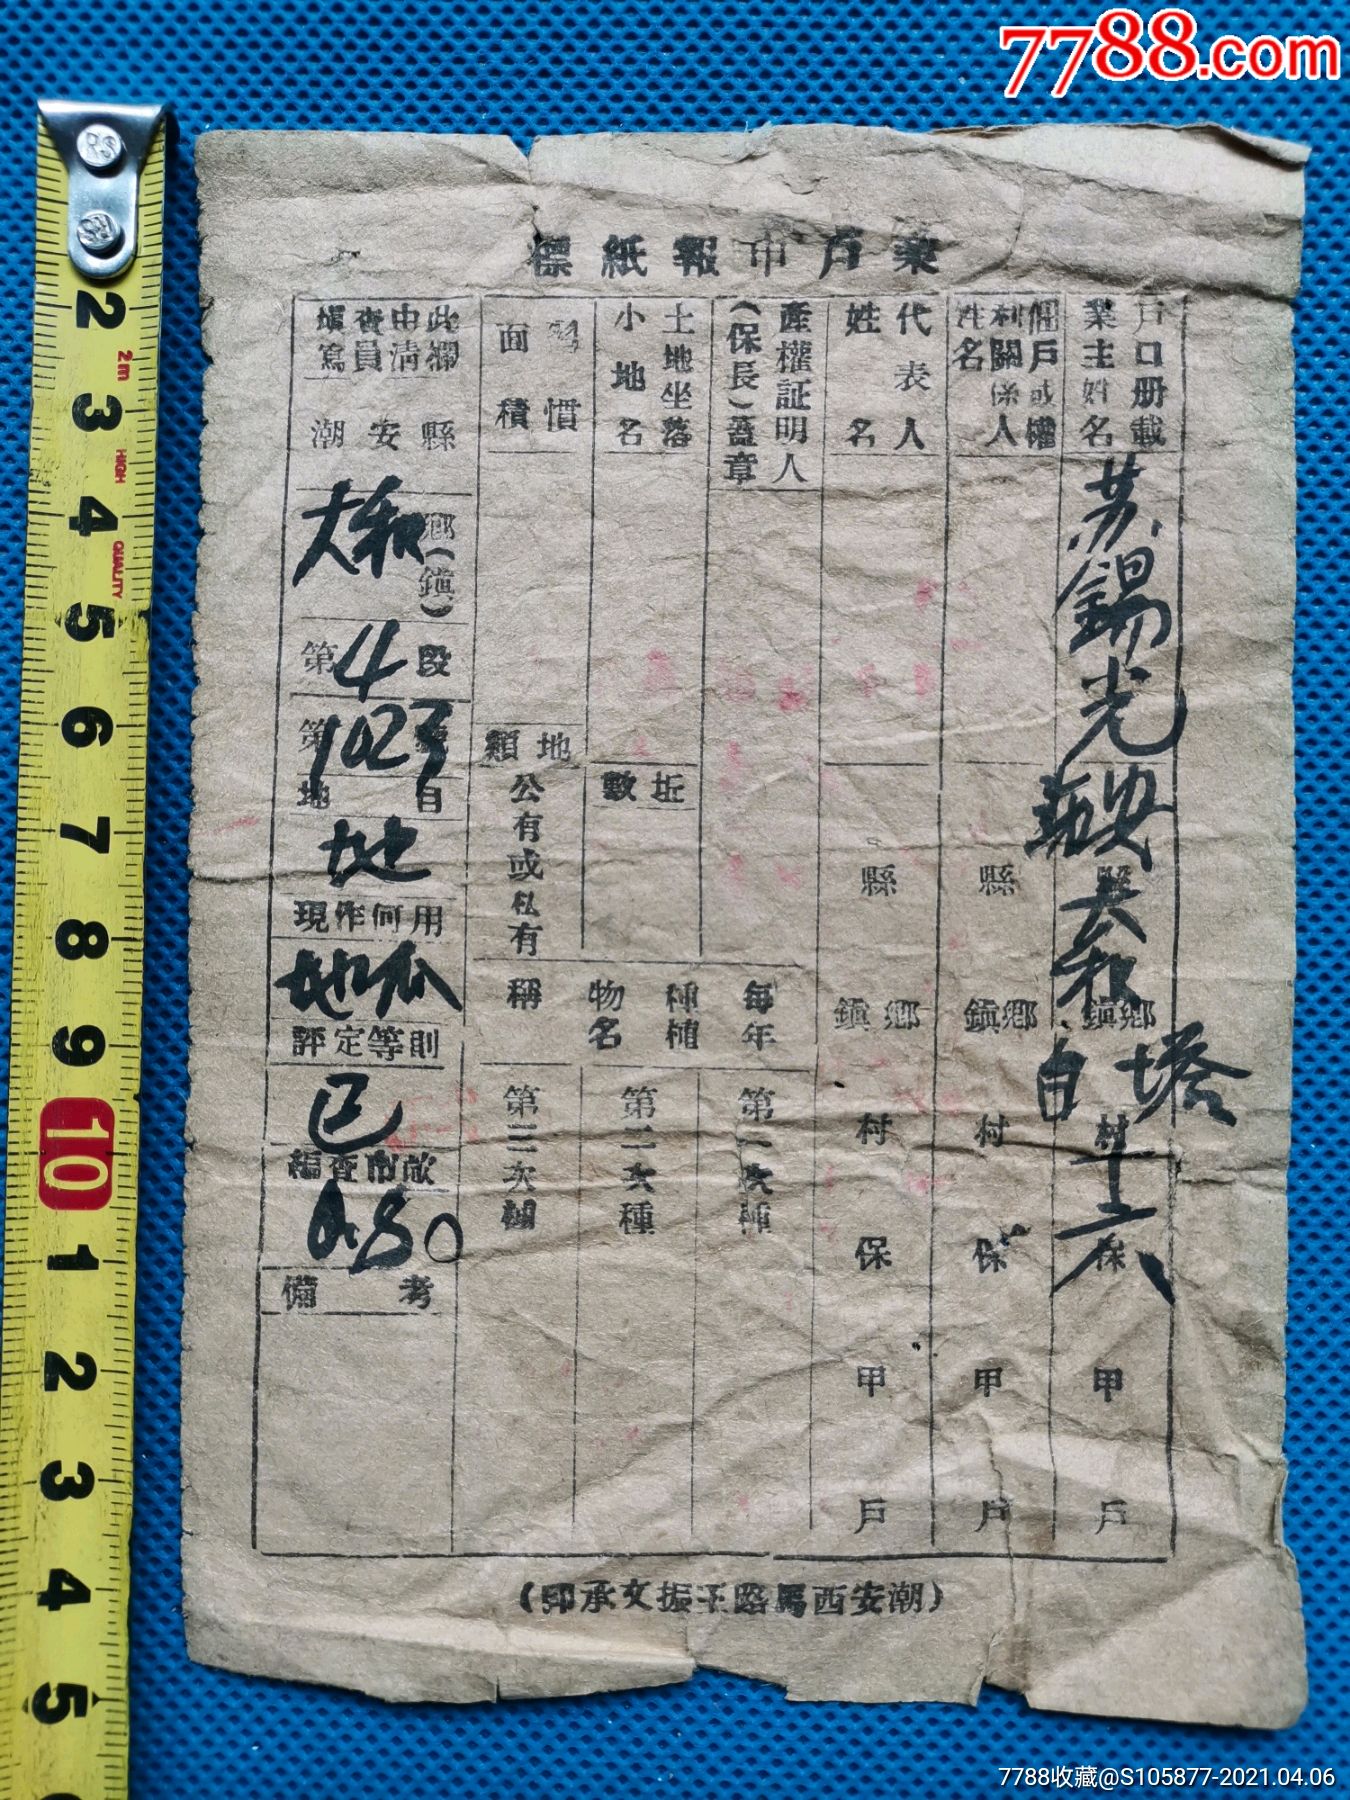 7788.com
業戶申報紙標
戶口册載
業主姓名
蘇錫光
潮安縣
大和鄉鎮
白塔村
十六保
甲
戶
佃戶或權
利關係人
姓名
縣
鄉鎮
村
保
甲
戶
代表人
姓名
縣
鄉鎮
村
保
甲
戶
產權証明人
(保長)蓋章
土地坐落
小地名
坵數
習慣
面積
地類
公有或私有
每年
種植
物名
稱
第一次種
第二次種
第三次種
此欄
申請
查員
填寫
潮安縣
大和鄉(鎮)
第4段
第1023號
地目
地
現作何用
地瓜
評定等則
已
編查市畝
0.80
備考
(潮安西馬路王振文承印)
RS
2m
HIGH
QUALITY
2
3
4
5
6
7
8
9
10
1
2
3
4
5
7788收藏@S105877-2021.04.06